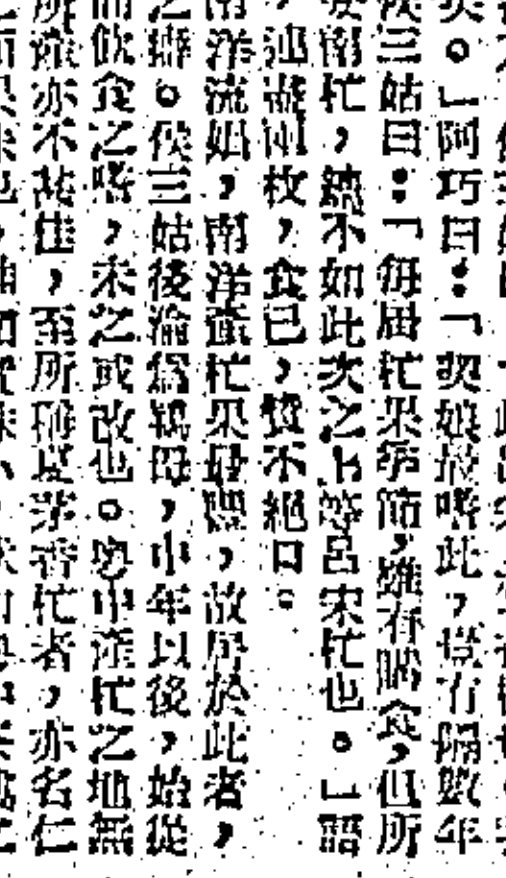 矣。」阿巧曰：「契娘最嗜此，豈有隔數年
侯三姑曰：「每屆忙果季節，雖有購食，但所
安南忙，總不如此次之上等呂宋忙也。」語
，連盡兩枚，食已，贊不絕口。
南洋流娼，南洋產忙果最豐，故居於此者，
之癖。侯三姑後淪爲鴇母，中年以後，始從
而飲食之嗜，未之或改也。粵中產忙之地無
所產亦不甚佳，至所稱是茅香忙者，亦名仁